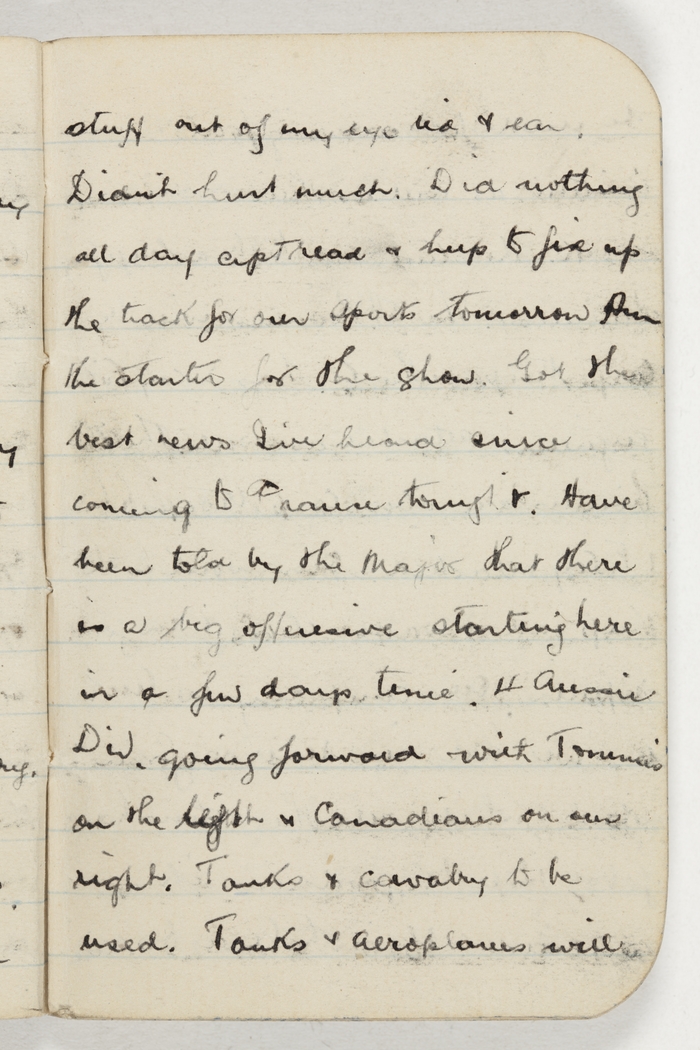 stuff out of my eye lid & ear.
Didn't hurt much. Did nothing
all day cept read & help to fix up
the track for our sports tomorrow Am
the starter for the show. Got the
best news Ive heard since
coming to France tonight. Have
been told by the Major that there
is a big offensive starting here
in a few days time. 4 Aussie
Div. going forward with Tommies
on the left & Canadians on our
right. Tanks & cavalry to be
used. Tanks & aeroplanes will